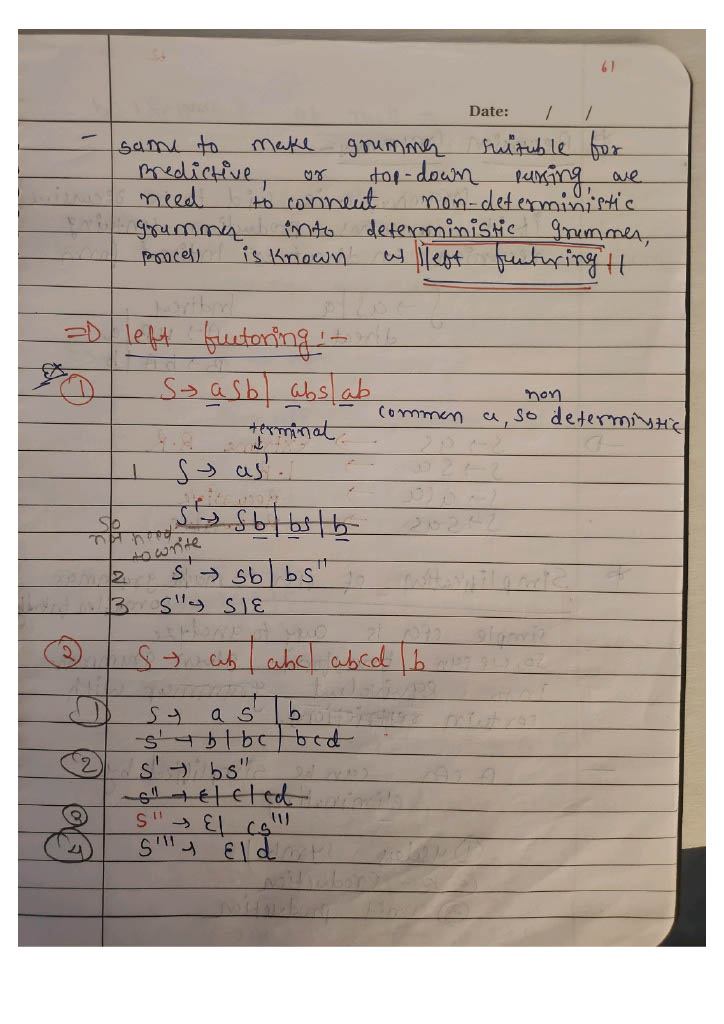 61
Date: / /
- same to make grammer suituble for
predictive, or top-down parsing, we
need to connect non-deterministic
grammer into deterministic grammer,
process is known as || left fuutoring ||
=> left fuutoring :-
① S → aSb | abs | ab
non
common a, so deterministic
terminal
↓
1 S → as'
S' → Sb | bs | b
so
not need
to write
2 S' → sb | bs''
3 S'' → S | ε
② S → ab | abc | abcd | b
① S → a s' | b
S' → b | bc | bcd
② S' → bs''
S'' → ε | c | cd
③ S'' → ε | cs'''
④ S''' → ε | d